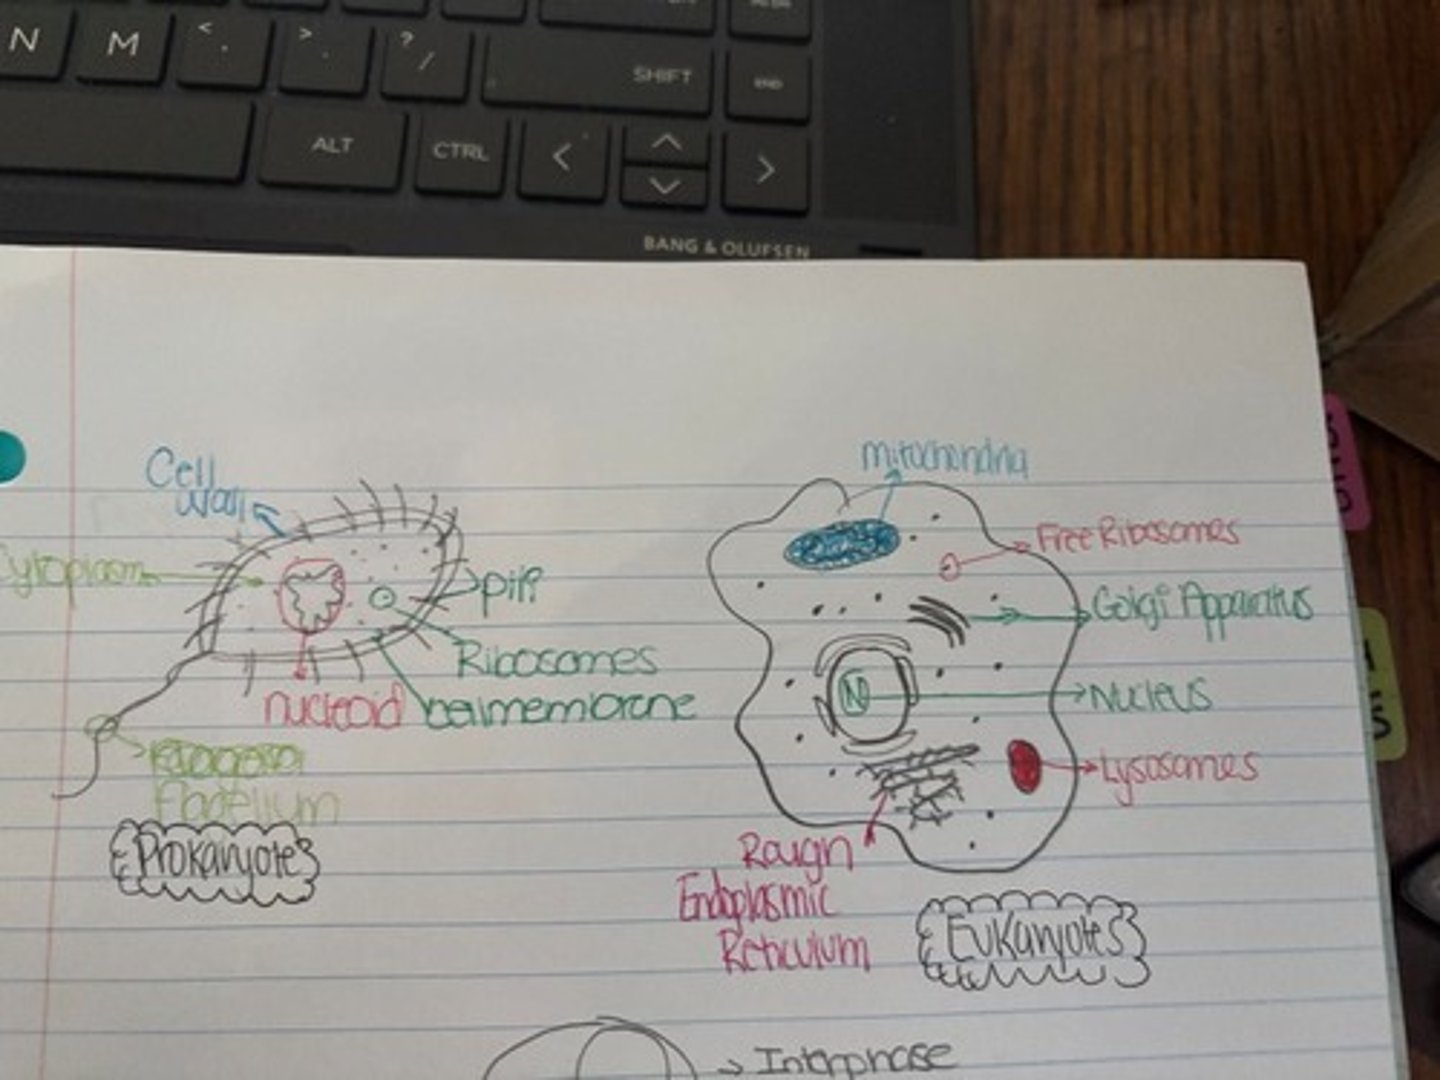 N M < , > . ? / SHIFT END
ALT CTRL
BANG & OLUFSEN
Cell
wall
Cytoplasm
pili
Ribosomes
nucleoid
cell membrane
Flagellum
Prokaryotes
mitochondria
Free Ribosomes
Golgi Apparatus
N
Nucleus
Lysosomes
Rough
Endoplasmic
Reticulum
Eukaryotes
Interphase